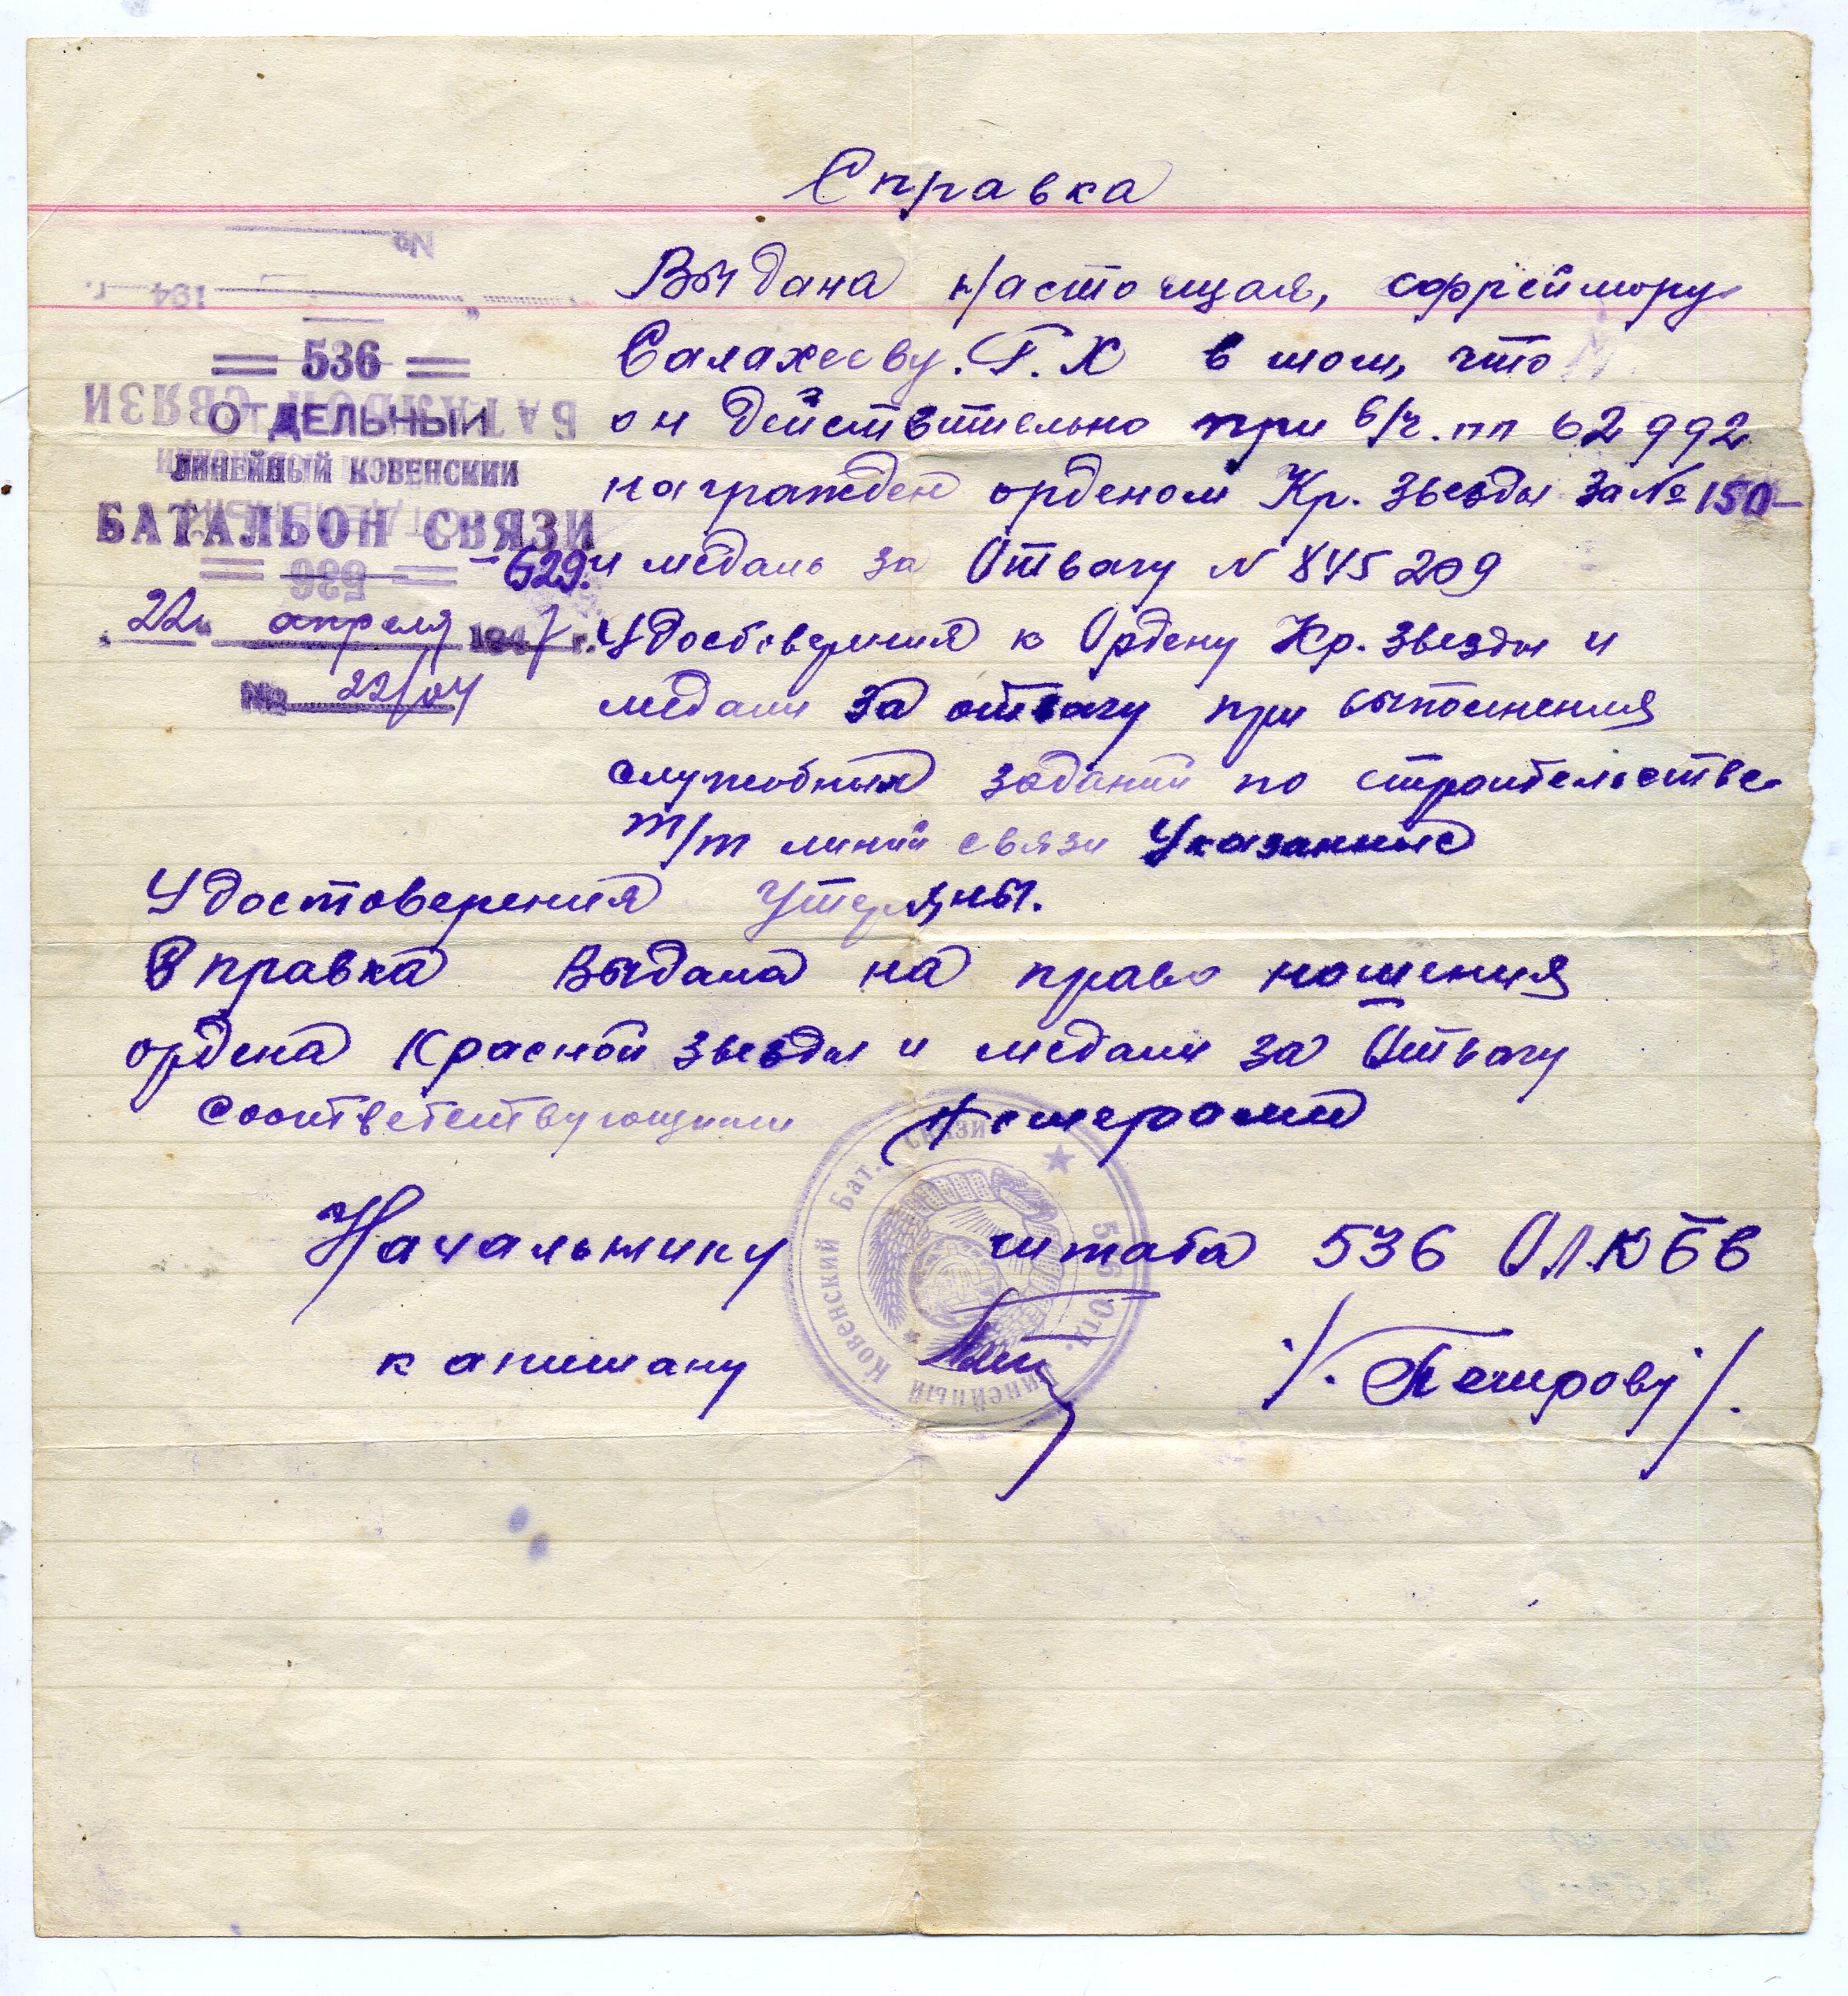 Справка
Выдана настоящая, ефрейтору
Салахееву. Г. Х в том, что
он действительно при в/ч. пп 62992
награжден орденом Кр. Звезды за № 150-
-629. и медаль за Отвагу N 845209
Удостоверения к Ордену Кр. Звезды и
медали за отвагу при выполнения
служебных заданий по строительстве
т/т линий связи Указанные
Удостоверения Утеряны.
Справка Выдана на право ношения
ордена Красной Звезды и медали за Отвагу
соответствующими Номерами
Начальнику штаба 536 ОЛКБв
капитану /. Петрову /.
536
ОТДЕЛЬНЫЙ
ЛИНЕЙНЫЙ КОВЕНСКИЙ
БАТАЛЬОН СВЯЗИ
"22" апреля 1947 г.
№ 22/04
536 Отд. Линейный Ковенский Бат. Связи